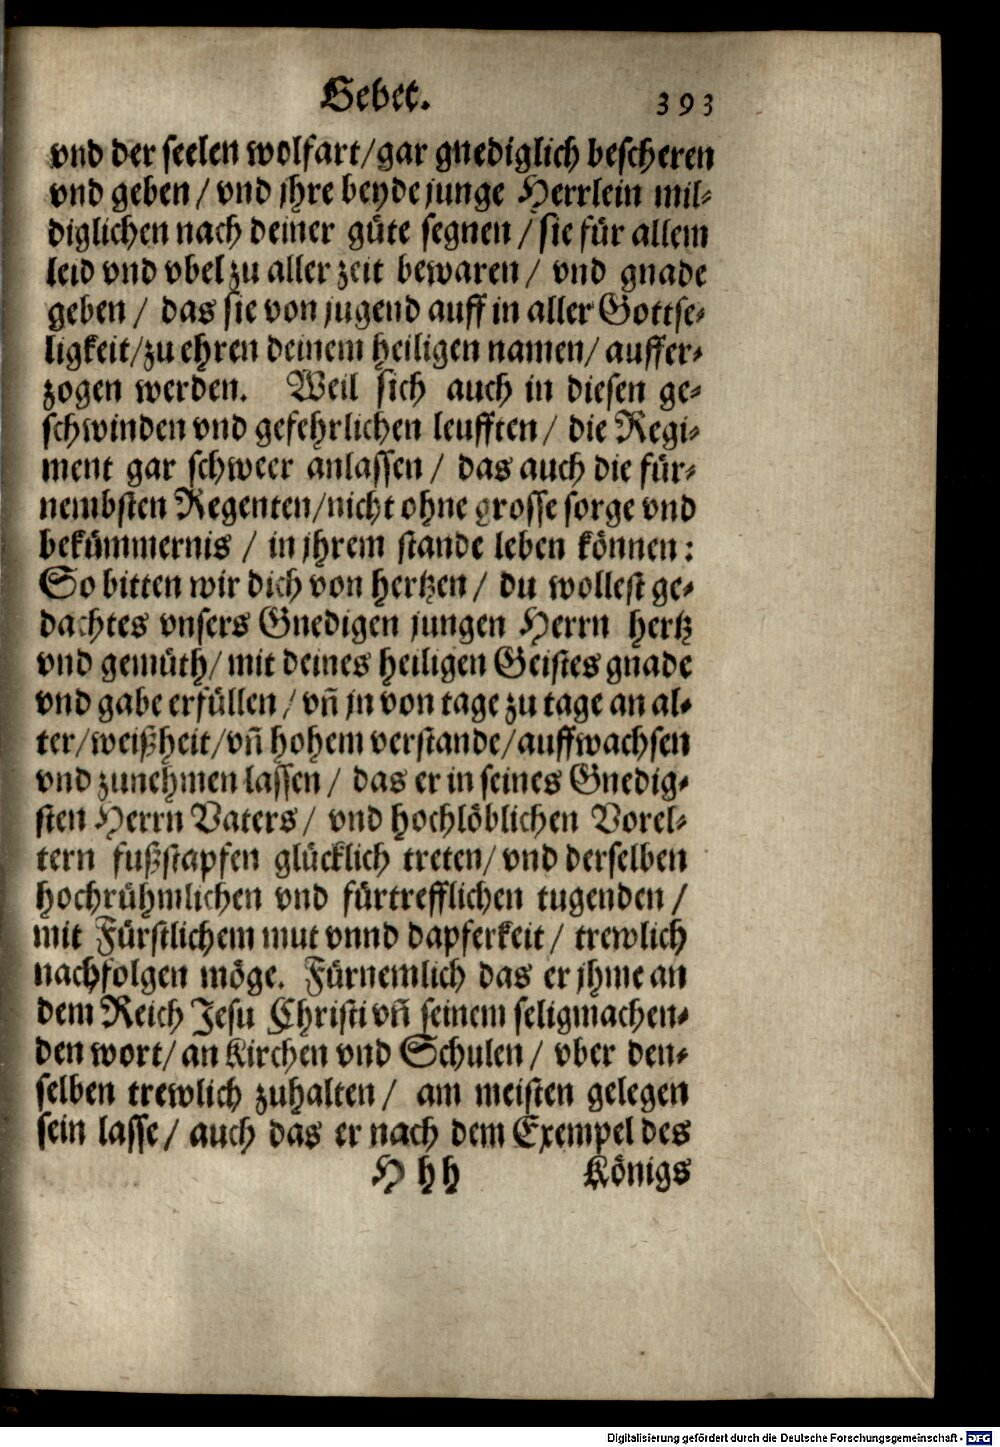 Gebet. 393
vnd der seelen wolfart/gar gnediglich bescheren
vnd geben / vnd jhre beyde junge Herrlein mil⸗
diglichen nach deiner güte segnen / sie für allem
leid vnd vbel zu aller zeit bewaren / vnd gnade
geben / das sie von jugend auff in aller Gottse⸗
ligkeit/zu ehren deinem heiligen namen/ auffer⸗
zogen werden. Weil sich auch in diesen ge⸗
schwinden vnd gefehrlichen leufften / die Regi⸗
ment gar schweer anlassen / das auch die für⸗
nembsten Regenten/nicht ohne grosse sorge vnd
bekümmernis / in jhrem stande leben können:
So bitten wir dich von hertzen / du wollest ge⸗
dachtes vnsers Gnedigen jungen Herrn hertz
vnd gemüth/ mit deines heiligen Geistes gnade
vnd gabe erfüllen / vñ jn von tage zu tage an al⸗
ter/weißheit/vñ hohem verstande/auffwachsen
vnd zunehmen lassen / das er in seines Gnedig⸗
sten Herrn Vaters / vnd hochlöblichen Vorel⸗
tern fußstapfen glücklich treten/ vnd derselben
hochrühmlichen vnd fürtrefflichen tugenden /
mit Fürstlichem mut vnnd dapferkeit / trewlich
nachfolgen möge. Fürnemlich das er jhme an
dem Reich Jesu Christi vñ seinem seligmachen⸗
den wort/ an Kirchen vnd Schulen / vber den⸗
selben trewlich zuhalten / am meisten gelegen
sein lasse / auch das er nach dem Exempel des
H h h Königs
Digitalisierung gefördert durch die Deutsche Forschungsgemeinschaft - DFG